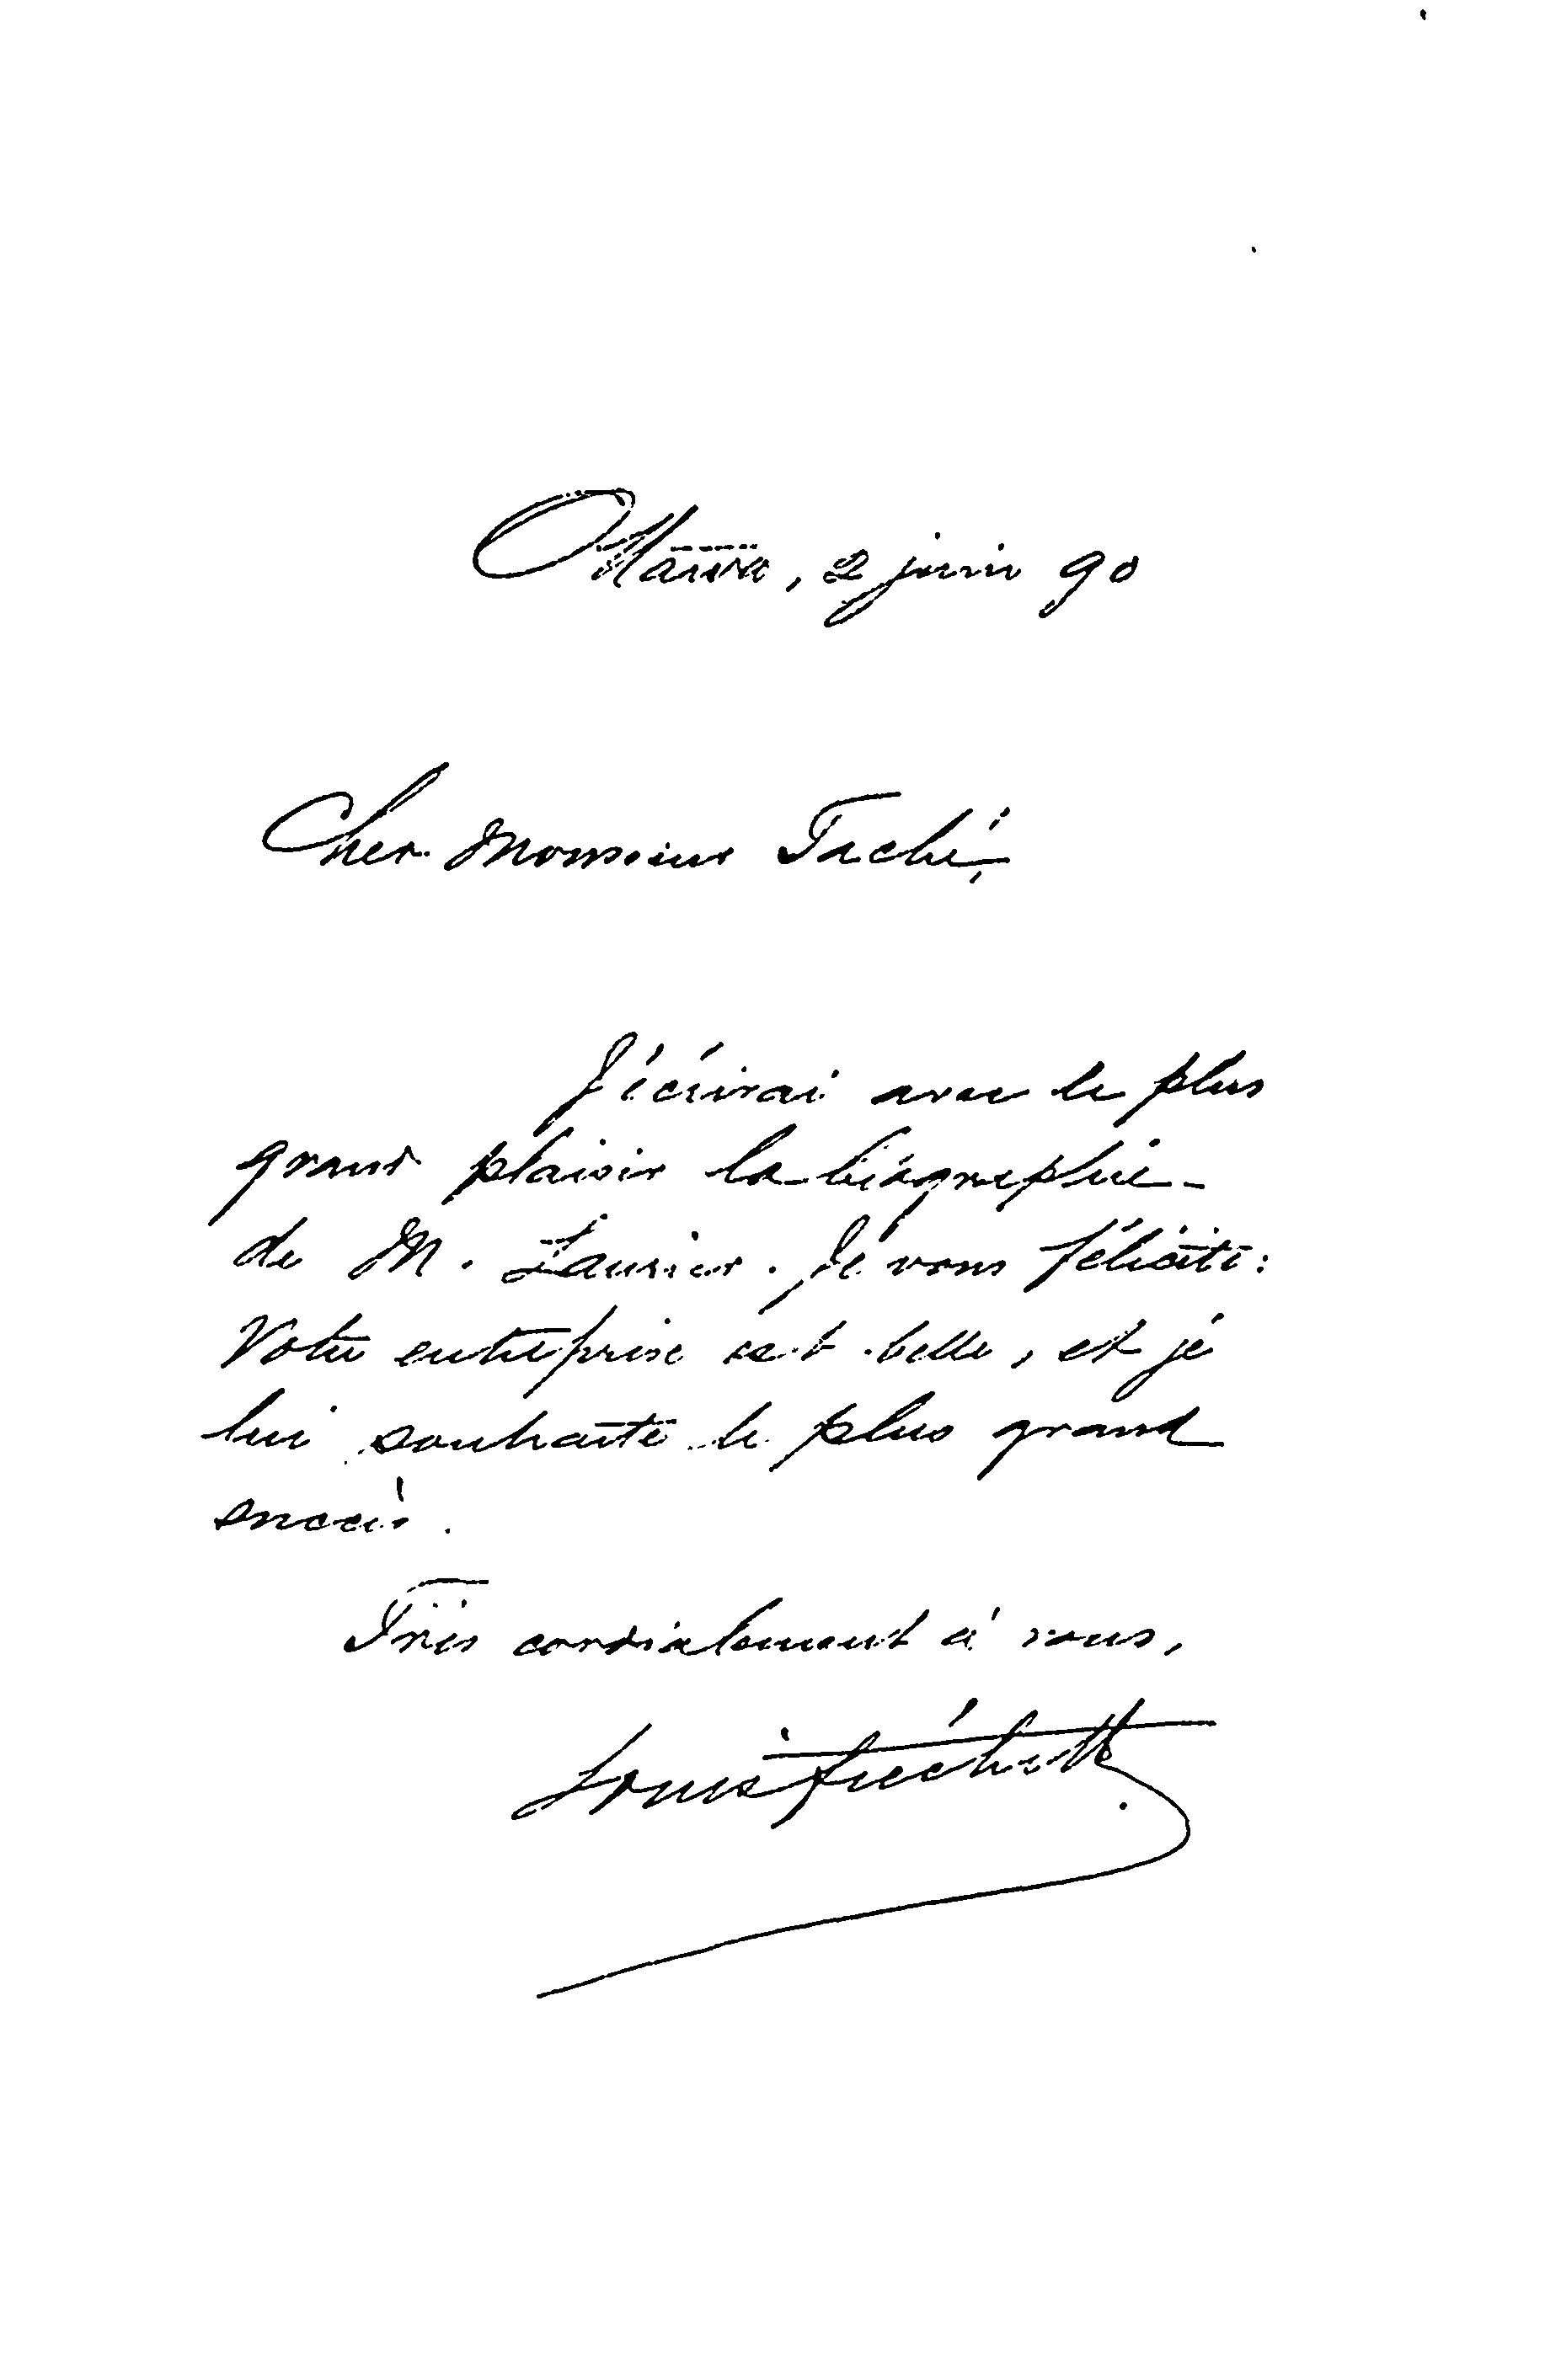 Ottawa, 2 juin 90
Cher Monsieur Taché,
J'écrirai avec le plus
grand plaisir la biographie
de M. Laurier. Je vous félicite :
Votre entreprise est belle, et je
lui souhaite le plus grand
succès.
Très cordialement à vous,
Louis Fréchette